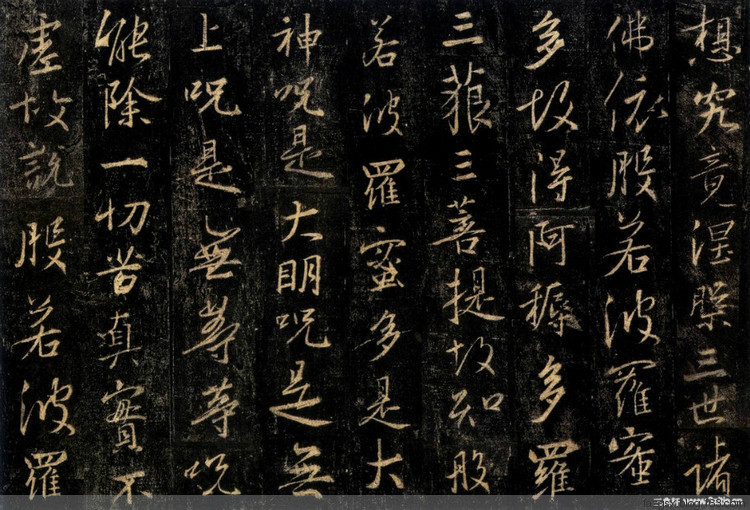 想究竟涅槃三世諸
佛依般若波羅蜜
多故得阿耨多羅
三藐三菩提故知般
若波羅蜜多是大
神呪是大明呪是無
上呪是無等等呪
能除一切苦真實不
虛故說般若波羅